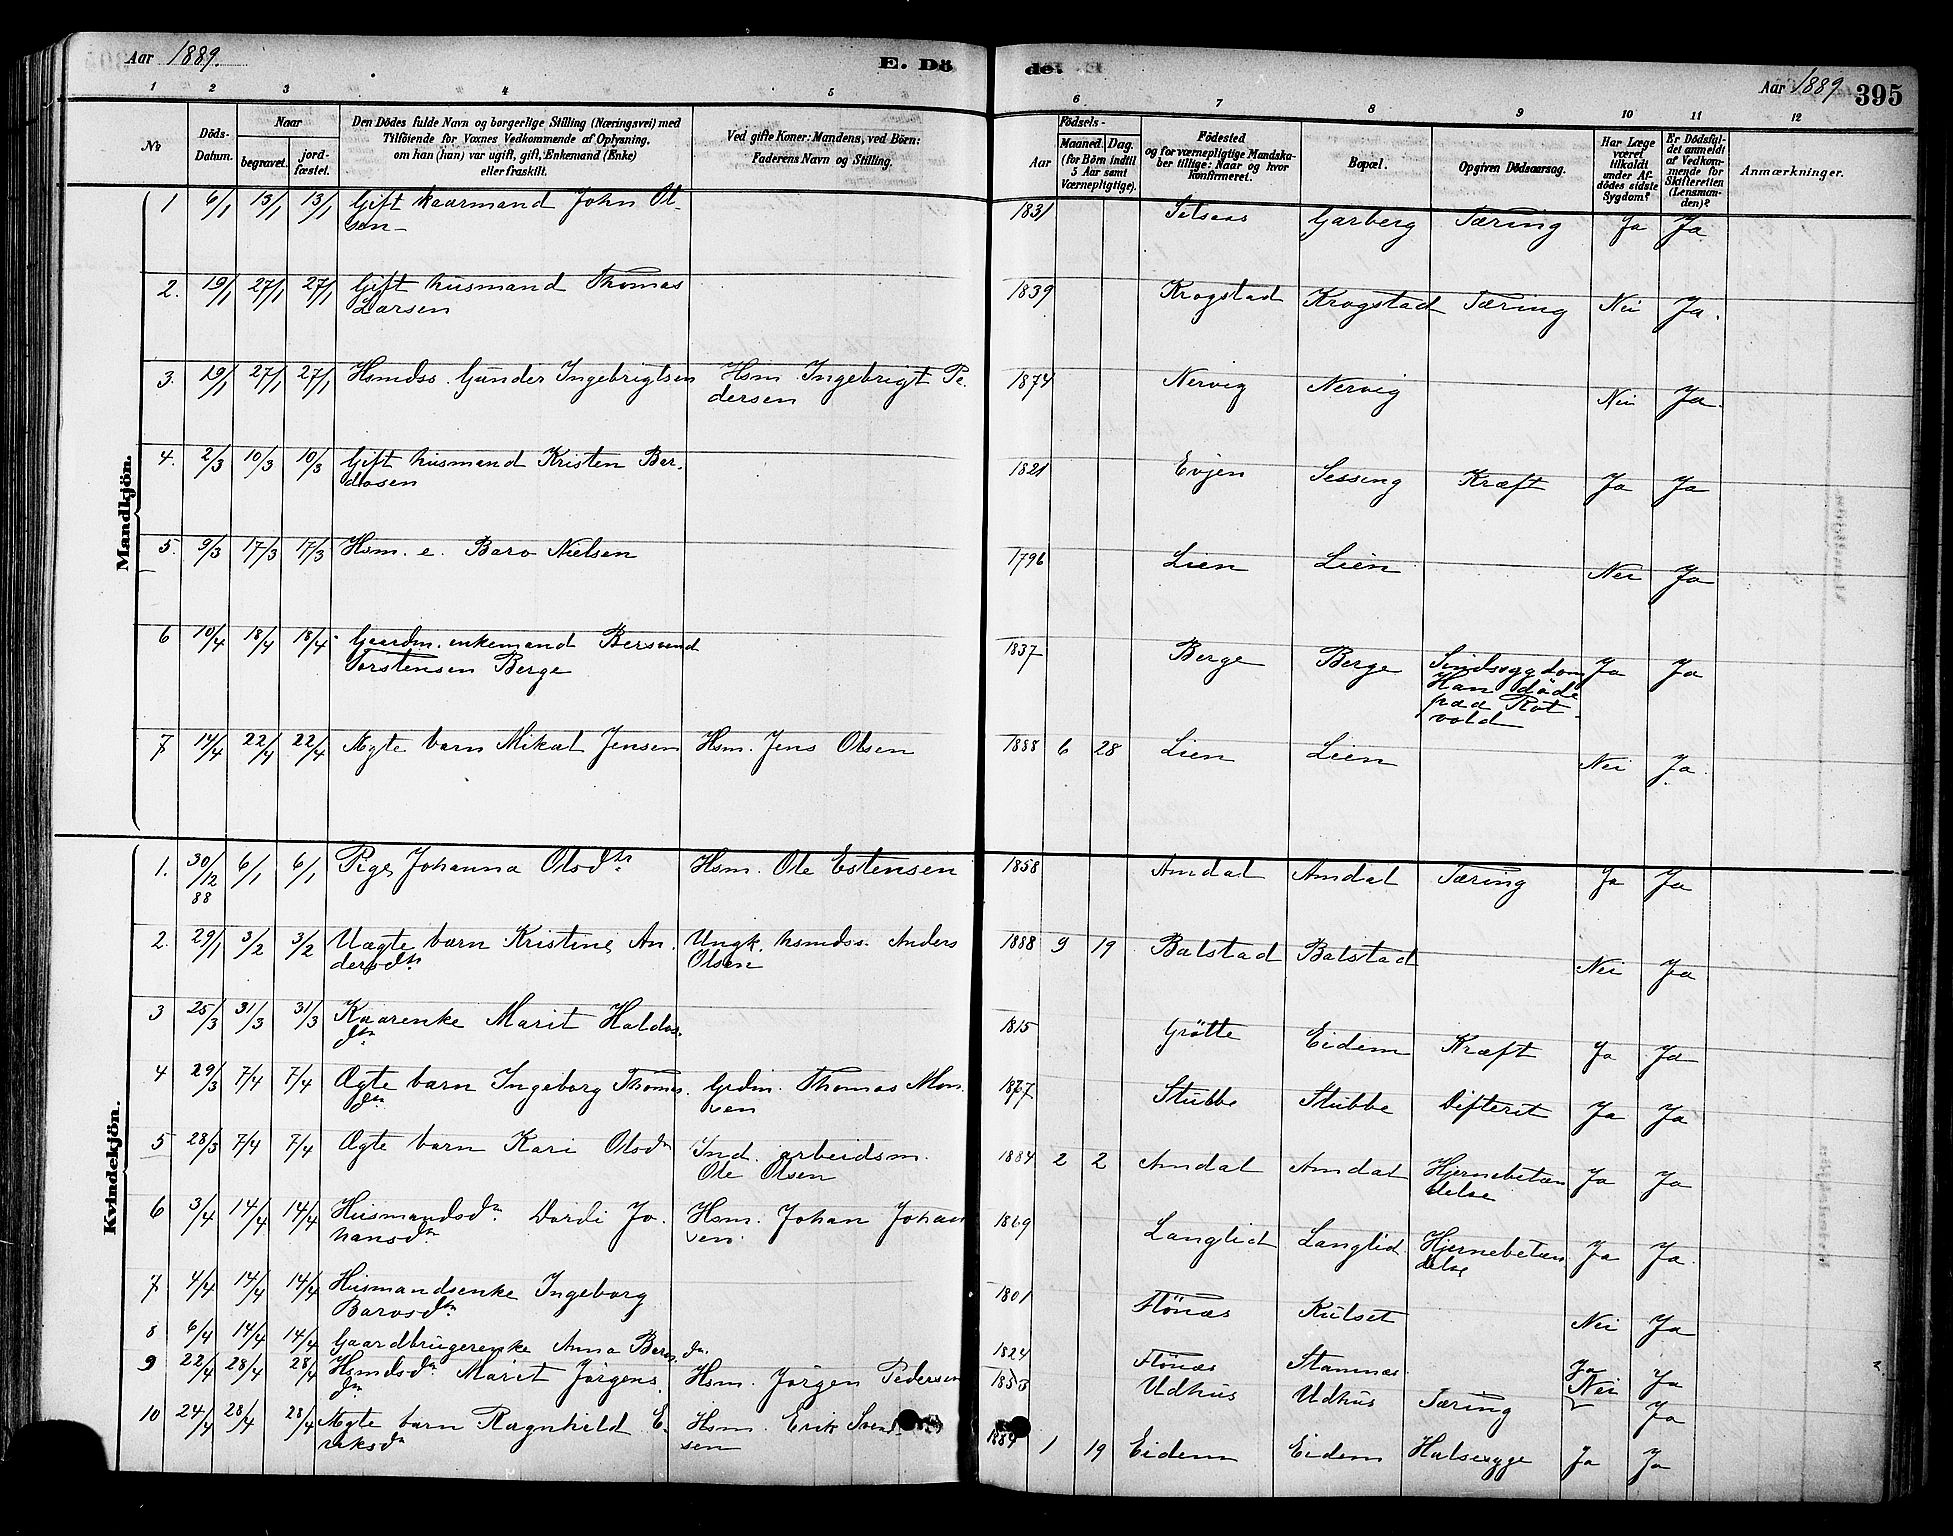 Aar 1889. E. Dö de. Aar 1889. 395
1 2 3 4 5 6 7 8 9 10 11 12
No
Döds-Datum.
Naar
begravet.
jordfæstet.
Den Dödes fulde Navn og borgerlige Stilling (Næringsvei) med
Tilföiende for Voxnes Vedkommende af Oplysning,
om han (hun) var ugift, gift, Enkemand (Enke)
eller fraskilt.
Ved gifte Koner: Mandens, ved Börn:
Faderens Navn og Stilling.
Födsels-
Aar
Maaned. Dag.
(for Börn indtil
5 Aar samt
Værnepligtige).
Födested
og for værnepligtige Mandskaber tillige: Naar og hvor
konfirmeret.
Bopæl.
Opgiven Dödsaarsag.
Har Læge
været
tilkaldt
under Afdödes sidste
Sygdom?
Er Dödsfaldet anmeldt
af Vedkommende for
Skifteretten
(Lensmanden)?
Anmærkninger.
Mandkjön.
1 6/1 13/1 13/1 Gift kaarmand John Olsen 1831 Selsaas Garberg Tæring Ja Ja
2. 19/1 27/1 27/1 Gift husmand Thomas Larsen 1839 Krogstad Krogstad Tæring Nei Ja.
3. 19/1 27/1 27/1 Hsmdss. Gunder Ingebrigtsen Hsm. Ingebrigt Pedersen 1874 Nervig Nervig Nei Ja.
4. 2/3 10/3 10/3 Gift husmand Kristen Berdosen 1821 Evjen Sessing Kræft Ja Ja
5. 9/3 17/3 17/3 Hsm. e. Baro Nielsen 1796 Lien Lien Nei Ja
6 10/4 18/4 18/4 Gaardm. enkemand Bersvend Torstensen Berge 1837 Berge Berge Sindssygdom Han döde paa Rotvold Ja Ja
7 14/4 22/4 22/4 Ægte barn Mikal Jensen Hsm. Jens Olsen 1888 6 28 Lien Lien Nei Ja.
Kvindekjön.
1. 30/12 88 6/1 6/1 Pige Johanna Olsdtr Hsm. Ole Estensen 1858 Amdal Amdal Tæring Ja Ja
2. 29/1 3/2 3/2 Uægte barn Kristine Andersdtr Ungk. hsmdss. Anders Olsen 1888 9 19 Balstad Balstad Nei Ja
3 25/3 31/3 31/3 Kaarenke Marit Haldosdtr 1815 Grötte Eidem Kræft Ja Ja
4 29/3 7/4 7/4 Ægte barn Ingeborg Thomasdtr Grdm. Thomas Monsen Stubbe Stubbe Difterit Ja Ja
5 28/3 7/4 7/4 Ægte barn Kari Olsdtr Ind. arbeidsm. Ole Olsen 1884 2 2 Amdal Amdal Hjernebetændelse Ja Ja
6 3/4 14/4 14/4 Husmandsdtr. Dordi Johansdtr Hsm. Johan Johansen. 1869 Langlid Langlid. Hjernebetændelse Ja Ja
7 4/4 14/4 14/4 Husmandsenke Ingeborg Barosdtr 1801 Flönæs Kulset Nei Ja
8 6/4 14/4 14/4 Gaardbrugerenke Anna Barosdtr. 1824 Flönæs Stamnæs Ja Ja
9 22/4 28/4 28/4 Hsmdsdtr. Marit Jörgensdtr Hsm. Jörgen Pedersen 1853 Udhus Udhus Tæring Nei Ja
10 24/4 28/4 28/4 Ægte barn Ragnhild Eriksdtr Hsm. Erik Svendsen 1884 1 19 Eidem Eidem Halsesyge Ja Ja